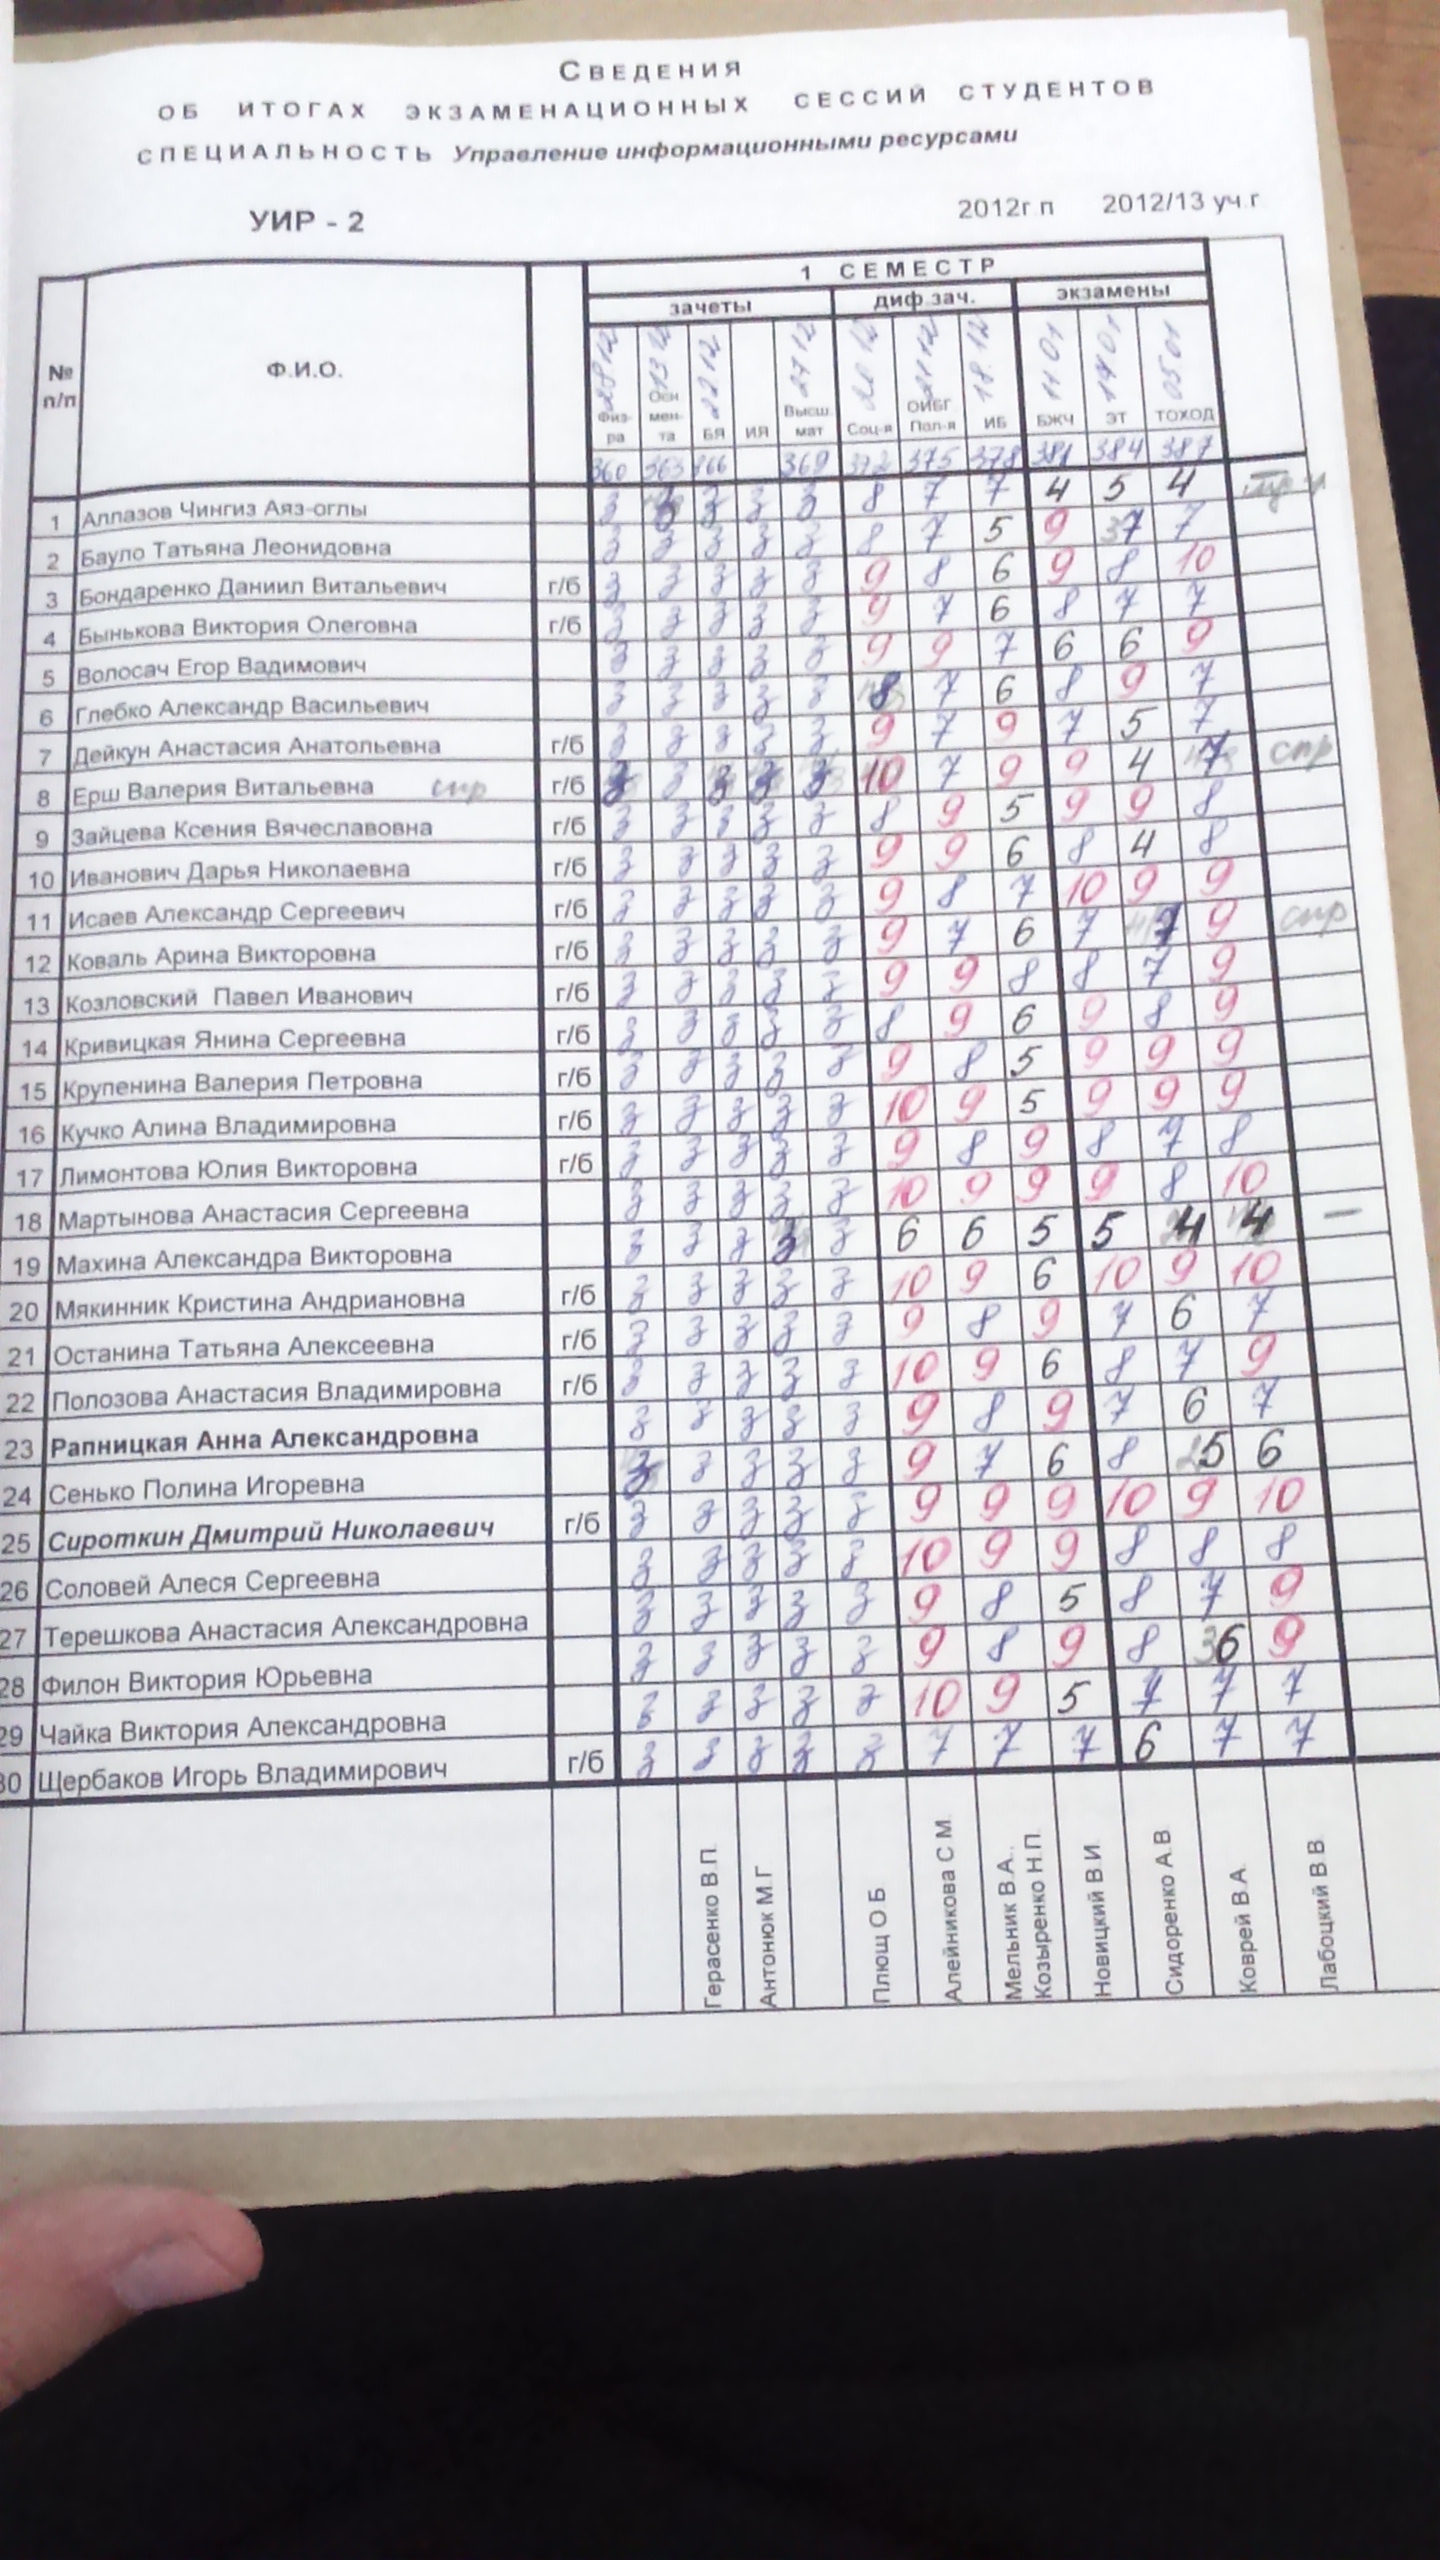 СВЕДЕНИЯ
ОБ ИТОГАХ ЭКЗАМЕНАЦИОННЫХ СЕССИЙ СТУДЕНТОВ
СПЕЦИАЛЬНОСТЬ Управление информационными ресурсами
УИР - 2 2012г п 2012/13 уч г
1 СЕМЕСТР
зачеты диф.зач. экзамены
№ п/п Ф.И.О. Физ-ра Осн мен-та БЯ ИЯ Высш мат Соц-я ОИБГ Пол-я ИБ БЖЧ ЭТ ТОХОД
28 12 13 12 22 12 27 12 20 12 21 12 18. 12 11 01 14 01 05 01
360 363 366 369 372 375 378 381 384 387
1 Аллазов Чингиз Аяз-оглы з з з з з 8 7 7 4 5 4
2 Бауло Татьяна Леонидовна з з з з з 8 7 5 9 37 7
3 Бондаренко Даниил Витальевич г/б з з з з з 9 8 6 9 8 10
4 Бынькова Виктория Олеговна г/б з з з з з 9 7 6 8 7 7
5 Волосач Егор Вадимович з з з з з 9 9 7 6 6 9
6 Глебко Александр Васильевич з з з з з 8 7 6 8 9 7
7 Дейкун Анастасия Анатольевна г/б з з з з з 9 7 9 7 5 7
8 Ерш Валерия Витальевна спр г/б з з з з з 10 7 9 9 4 7 спр
9 Зайцева Ксения Вячеславовна г/б з з з з з 8 9 5 9 9 8
10 Иванович Дарья Николаевна г/б з з з з з 9 9 6 8 4 8
11 Исаев Александр Сергеевич г/б з з з з з 9 8 7 10 9 9
12 Коваль Арина Викторовна г/б з з з з з 9 7 6 7 7 9 спр
13 Козловский Павел Иванович г/б з з з з з 9 9 8 8 7 9
14 Кривицкая Янина Сергеевна г/б з з з з з 8 9 6 9 8 9
15 Крупенина Валерия Петровна г/б з з з з з 9 8 5 9 9 9
16 Кучко Алина Владимировна г/б з з з з з 10 9 5 9 9 9
17 Лимонтова Юлия Викторовна г/б з з з з з 9 8 9 8 7 8
18 Мартынова Анастасия Сергеевна з з з з з 10 9 9 9 8 10
19 Махина Александра Викторовна з з з з з 6 6 5 5 4 4 —
20 Мякинник Кристина Андриановна г/б з з з з з 10 9 6 10 9 10
21 Останина Татьяна Алексеевна г/б з з з з з 9 8 9 7 6 7
22 Полозова Анастасия Владимировна г/б з з з з з 10 9 6 8 7 9
23 Рапницкая Анна Александровна з з з з з 9 8 9 7 6 7
24 Сенько Полина Игоревна з з з з з 9 7 6 8 5 6
25 Сироткин Дмитрий Николаевич г/б з з з з з 9 9 9 10 9 10
26 Соловей Алеся Сергеевна з з з з з 10 9 9 8 8 8
27 Терешкова Анастасия Александровна з з з з з 9 8 5 8 7 9
28 Филон Виктория Юрьевна з з з з з 9 8 9 8 36 9
29 Чайка Виктория Александровна з з з з з 10 9 5 7 7 7
30 Щербаков Игорь Владимирович г/б з з з з з 7 7 7 6 7 7
Герасенко В.П.
Антонюк М.Г
Плющ О Б
Алейникова С М
Мельник В.А.,
Козыренко Н.П.
Новицкий В.И.
Сидоренко А.В
Коврей В.А.
Лабоцкий В.В